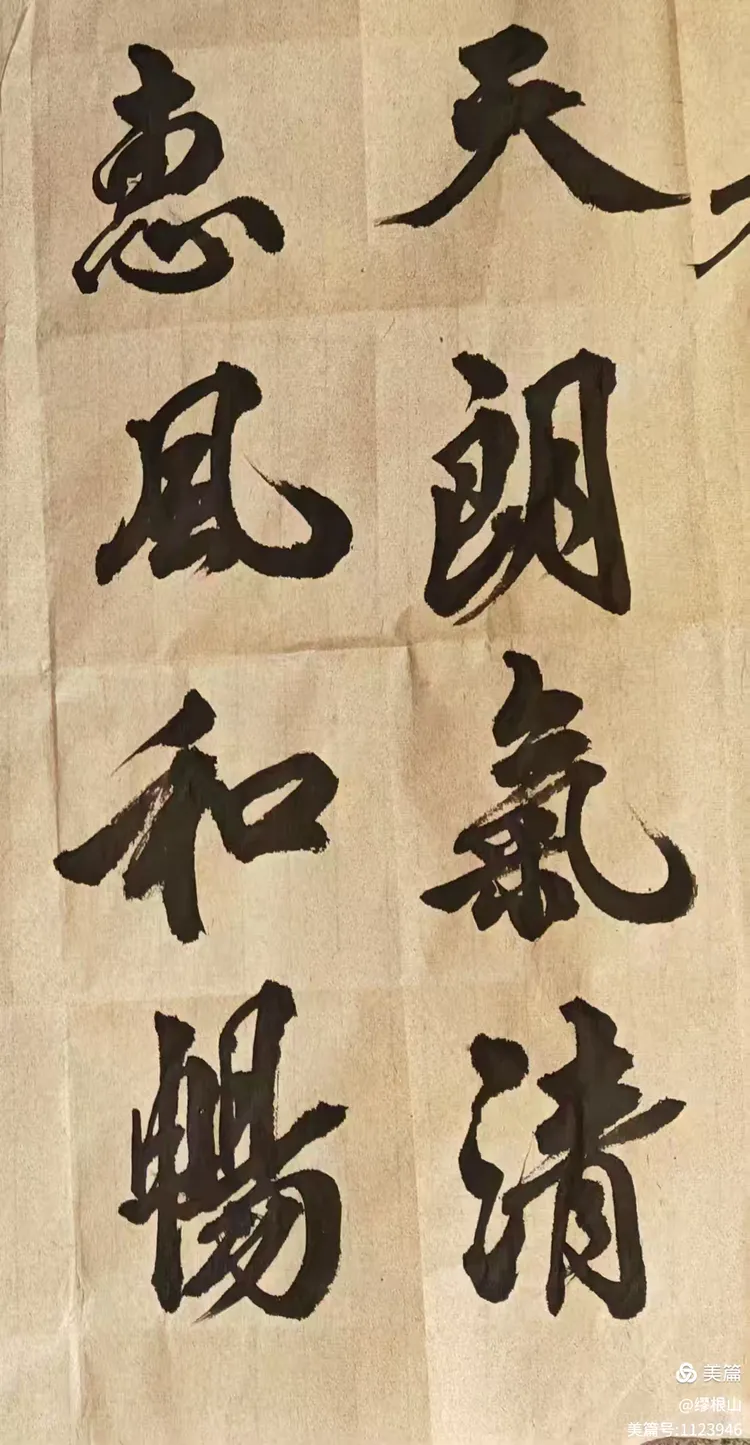 天朗氣清
惠風和暢
美篇
@缪根山
美篇号:1123946